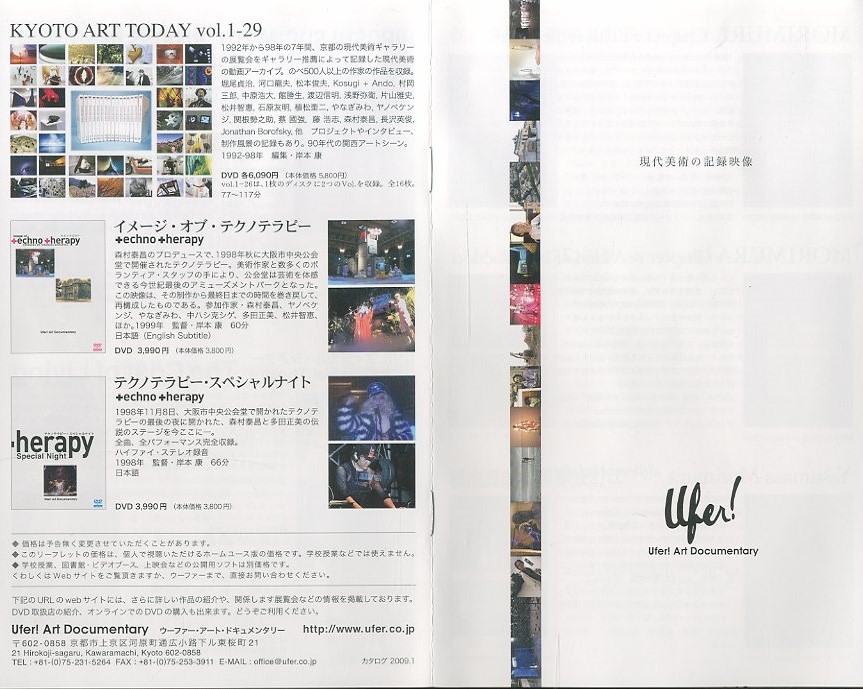 KYOTO ART TODAY vol.1-29
1992年から98年の7年間、京都の現代美術ギャラリー
の展覧会をギャラリー推薦によって記録した現代美術
の動画アーカイブ。のべ500人以上の作家の作品を収録。
堀尾貞治, 河口龍夫, 松本俊夫, Kosugi + Ando, 村岡
三郎, 中原浩大, 館勝生, 渡辺信明, 浅野弥衛, 片山雅史,
松井智恵, 石原友明, 植松奎二, やなぎみわ, ヤノベケン
ジ, 関根勢之助, 蔡 國強, 藤 浩志, 森村泰昌, 長沢英俊,
Jonathan Borofsky, 他 プロジェクトやインタビュー、
制作風景の記録もあり。90年代の関西アートシーン。
1992-98年 編集・岸本 康
DVD 各6,090円 （本体価格 5,800円）
vol.1-26は、1枚のディスクに2つのVol.を収録。全16枚。
77〜117分
イメージ・オブ・テクノテラピー
+echno +herapy
森村泰昌のプロデュースで、1998年秋に大阪市中央公会
堂で開催されたテクノテラピー。美術作家と数多くのボ
ランティア・スタッフの手により、公会堂は芸術を体感
できる今世紀最後のアミューズメントパークとなった。
この映像は、その制作から最終日までの時間を巻き戻して、
再構成したものである。参加作家・森村泰昌、ヤノベケ
ンジ、やなぎみわ、中ハシ克シゲ、多田正美、松井智恵、
ほか。1999年 監督・岸本 康 60分
日本語（English Subtitle）
DVD 3,990円 （本体価格 3,800円）
+echno +herapy
Ufer! Art Documentary
テクノテラピー・スペシャルナイト
+echno +herapy
1998年11月8日、大阪市中央公会堂で開かれたテクノテ
ラピーの最後の夜に開かれた、森村泰昌と多田正美の伝
説のステージを今ここに―。
全曲、全パフォーマンス完全収録。
ハイファイ・ステレオ録音
1998年 監督・岸本 康 66分
日本語
DVD 3,990円 （本体価格 3,800円）
·herapy
Special Night
Ufer! Art Documentary
◆ 価格は予告無く変更させていただくことがあります。
◆ このリーフレットの価格は、個人で視聴いただけるホームユース版の価格です。学校授業などでは使えません。
◆ 学校授業、図書館・ビデオブース、上映会などの公開用ソフトは別価格です。
くわしくはWebサイトをご覧頂きますか、ウーファーまで、直接お問い合わせください。
下記のURLのwebサイトには、さらに詳しい作品の紹介や、関係します展覧会などの情報を掲載しております。
DVD取扱店の紹介、オンラインでのDVDの購入も出来ます。どうぞご利用ください。
Ufer! Art Documentary ウーファー・アート・ドキュメンタリー http://www.ufer.co.jp
〒602-0858 京都市上京区河原町通広小路下ル東桜町21
21 Hirokoji-sagaru, Kawaramachi, Kyoto 602-0858
TEL：+81-(0)75-231-5264 FAX：+81-(0)75-253-3911 E-MAIL：office@ufer.co.jp カタログ 2009.1
現代美術の記録映像
Ufer!
Ufer! Art Documentary